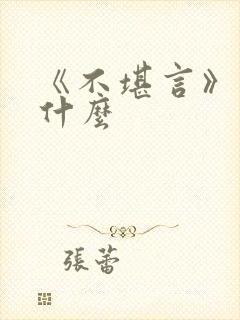 《不堪言》
什麼
張蕾